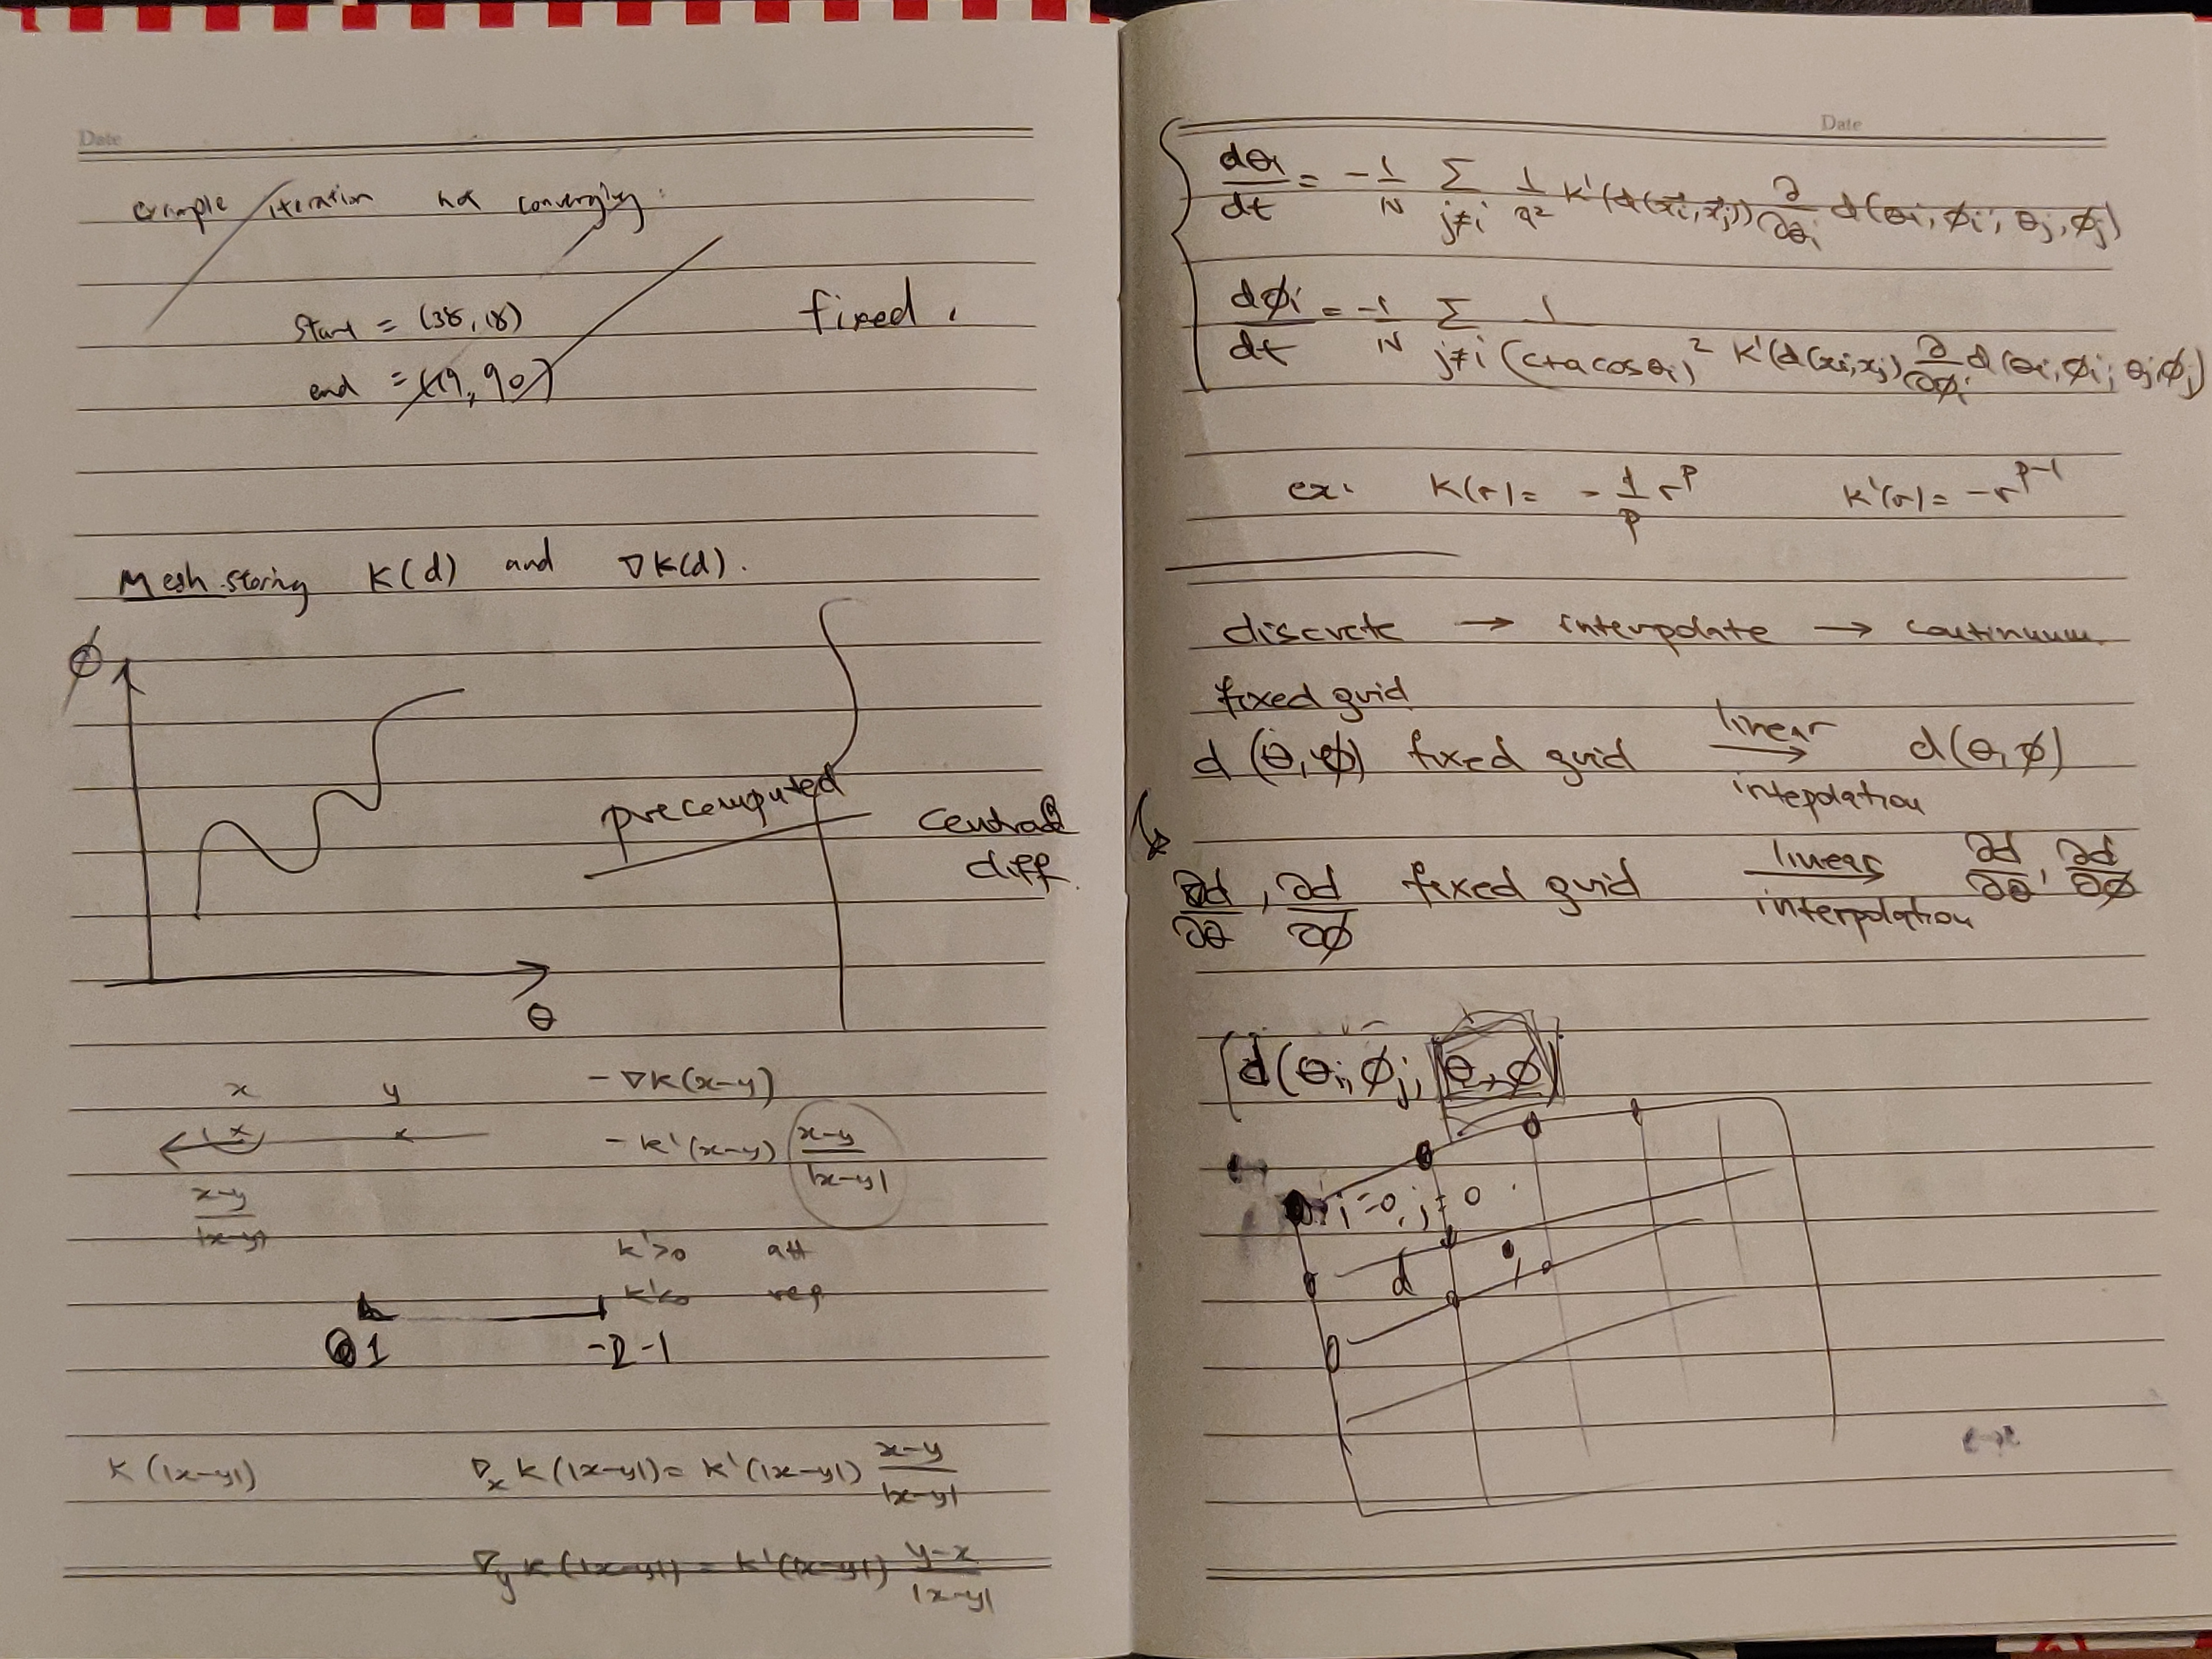 Date
example iteration not converging:
start = (38, 18)
fixed.
end = (19, 90)
Mesh storing K(d) and ∇K(d).
ϕ
precomputed
central diff.
θ
x y
-∇K(x-y)
x x
-K'(x-y) (x-y)/|x-y|
(x-y)/|x-y|
K'>0 att
K'<0 rep
1 -2 -1
K(|x-y|) ∇x K(|x-y|) = K'(|x-y|) (x-y)/|x-y|
∇y K(|x-y|) = K'(|x-y|) (y-x)/|x-y|
Date
dθi/dt = -1/N Σ j≠i 1/a² K'(d(xi, xj)) ∂/∂θi d(θi, ϕi; θj, ϕj)
dϕi/dt = -1/N Σ j≠i 1/(c+a cosθi)² K'(d(xi,xj)) ∂/∂ϕi d(θi, ϕi; θj, ϕj)
ex: K(r) = -1/p r^p K'(r) = -r^(p-1)
discrete → interpolate → continuum
fixed grid
d(θ, ϕ) fixed grid linear intepolation → d(θ, ϕ)
∂d/∂θ, ∂d/∂ϕ fixed grid linear interpolation → ∂d/∂θ, ∂d/∂ϕ
d(θi, ϕj, θ, ϕ)
i=0, j=0
d